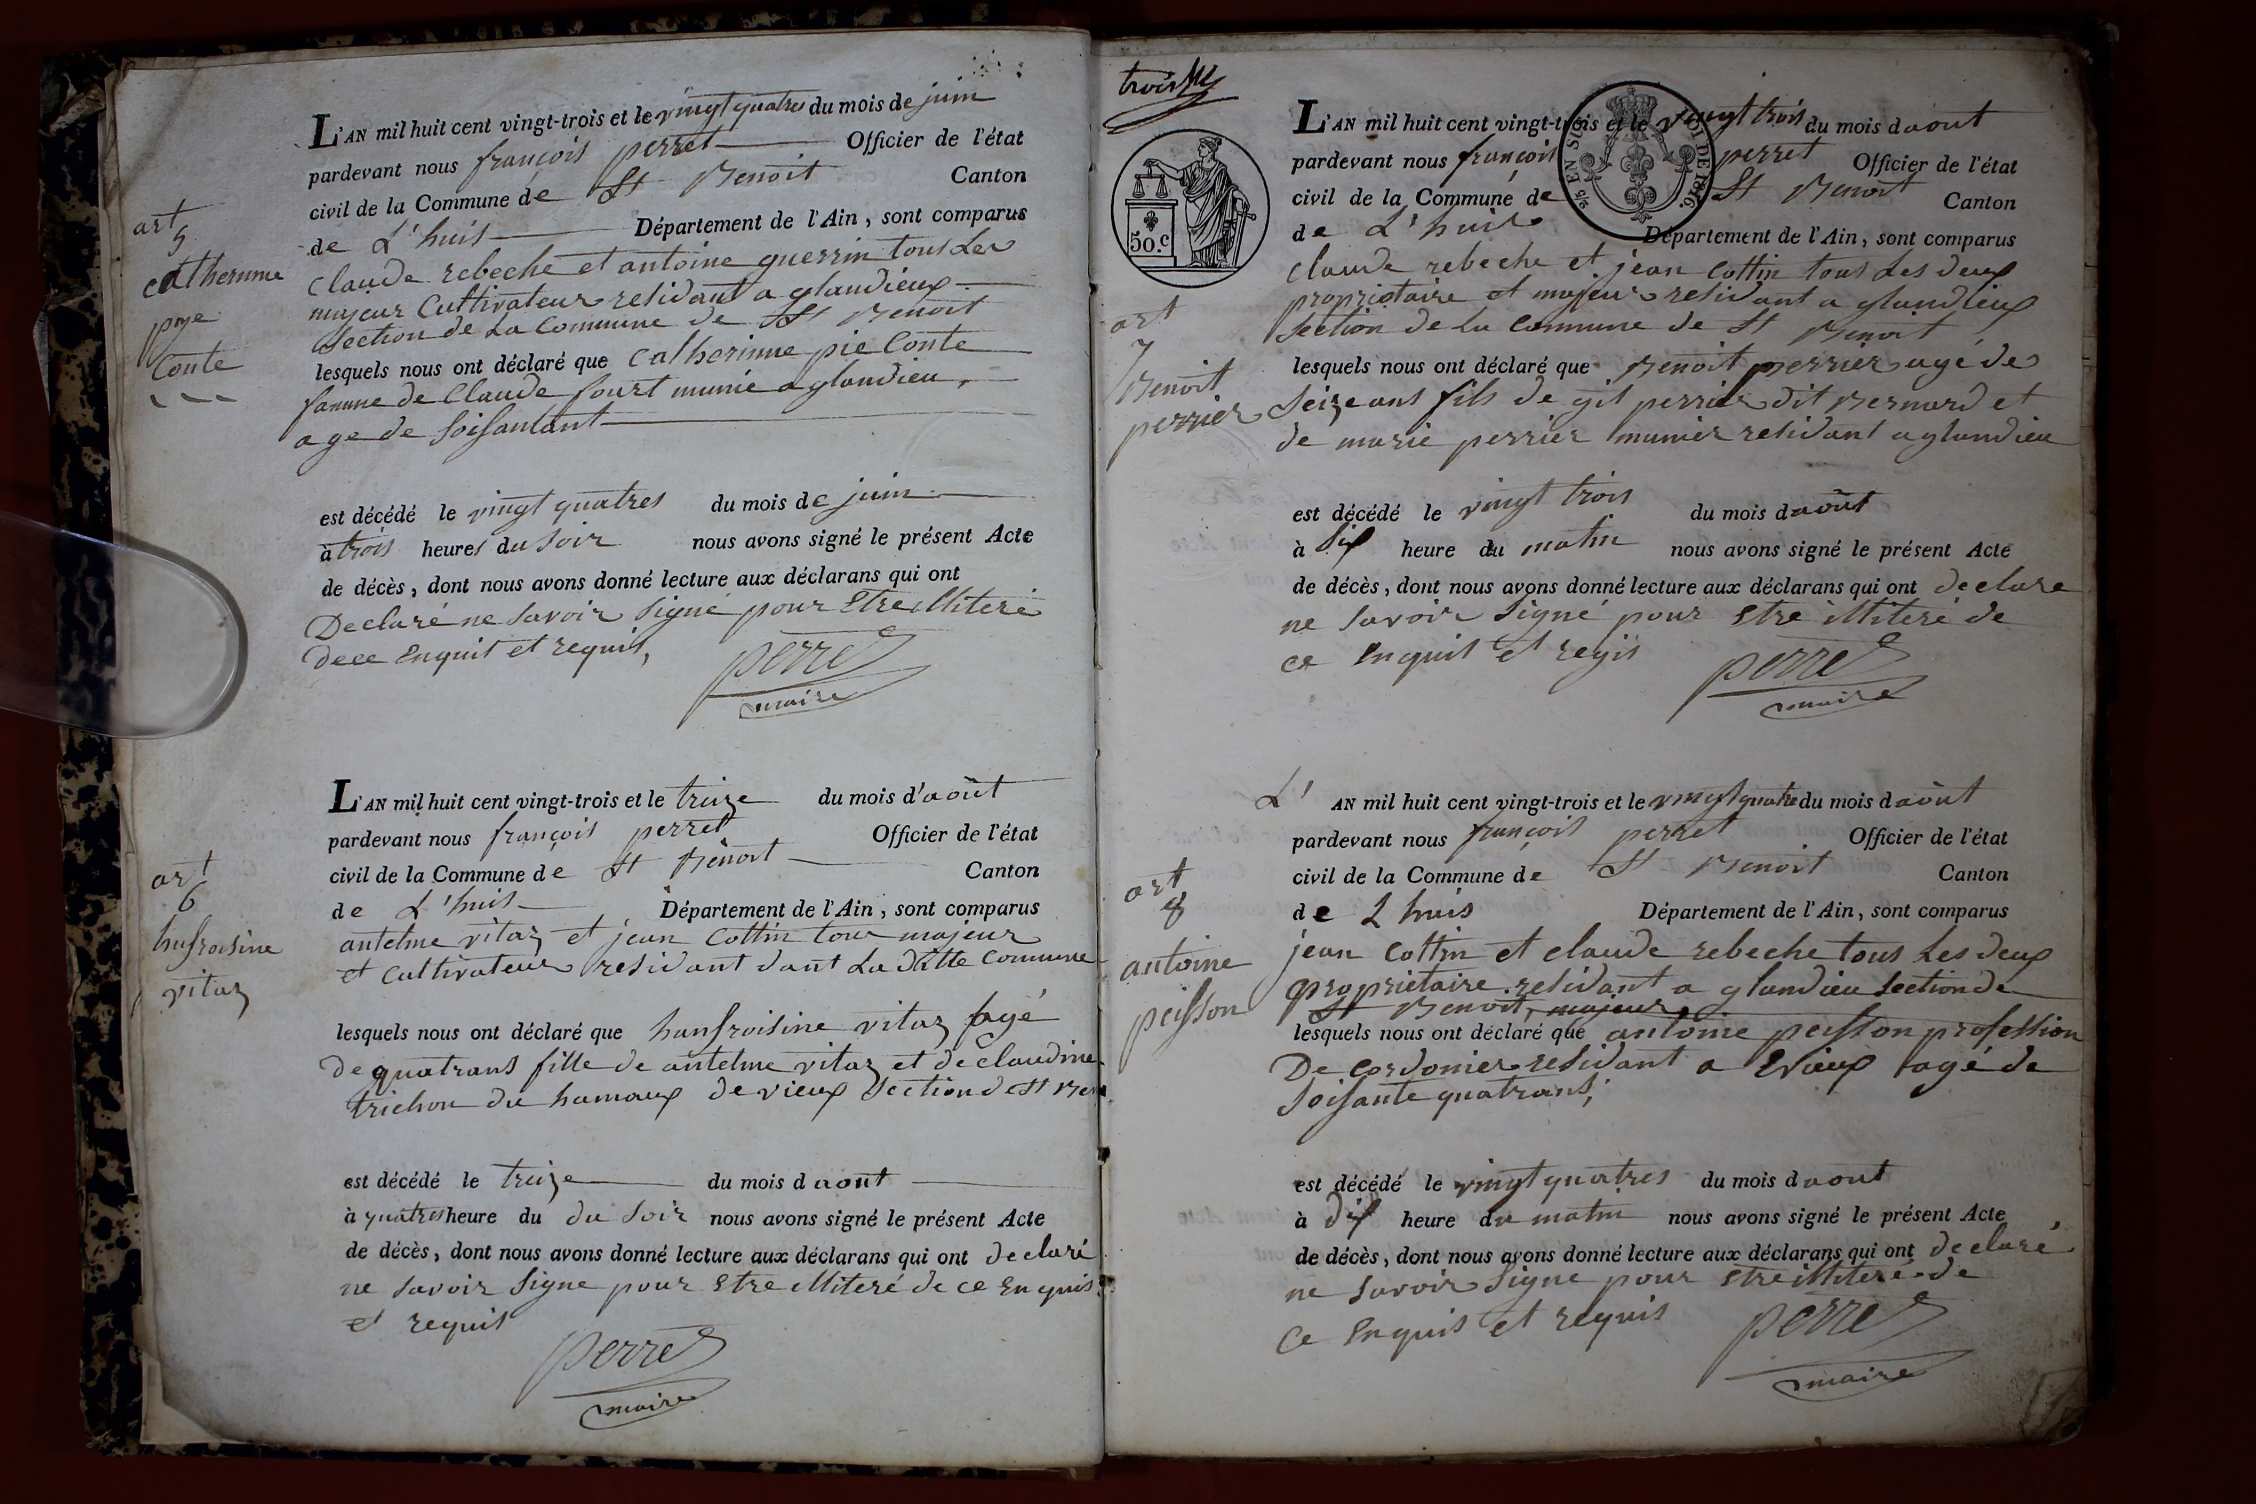 L'AN mil huit cent vingt-trois et le vingt quatres du mois de juin
pardevant nous françois perret Officier de l'état
civil de la Commune de St Benoit Canton
de L'huis Département de l'Ain, sont comparus
claude rebeche et antoine guerrin tous Les
majeur Cultivateur residant a glandieux
Section de La Commune de St Benoit
lesquels nous ont déclaré que Catherinne pie Conte
famme de Claude fourt munié a glandieu,
age de soisantant
est décédé le vingt quatres du mois de juin
à trois heures du soir nous avons signé le présent Acte
de décès, dont nous avons donné lecture aux déclarans qui ont
Declaré ne savoir signé pour Etre illiteré
dece Enquit et requis,
perret
maire
art
5
catherinne
pye
Conte
L'AN mil huit cent vingt-trois et le treize du mois d'août
pardevant nous françois perret Officier de l'état
civil de la Commune de St Benoit Canton
de L'huis Département de l'Ain, sont comparus
antelme vitaz et jean Cottin tour majeur
et Cultivateur residant dant La ditte Commune
lesquels nous ont déclaré que hunfroisine vitaz agé
de quatrans fille de antelme vitaz et de claudine
trichon du hamaux de vieux Section de St Ben
est décédé le treize du mois d aout
à quatres heure du du soir nous avons signé le présent Acte
de décès, dont nous avons donné lecture aux déclarans qui ont declaré
ne savoir signe pour Etre illiteré de ce Enquis
et requis
perret
maire
art
6
hufroisine
vitaz
trois
50.c
EN SUS
LOI DE 1816.
L'AN mil huit cent vingt-trois et le vingt trois du mois d aout
pardevant nous françois perret Officier de l'état
civil de la Commune de St Benoit Canton
de L'huis Département de l'Ain, sont comparus
claude rebeche et jean Cottin tous Les deux
proprietaire et majeur residant a glandieux
Section de La Commune de St Benoit
lesquels nous ont déclaré que Benoit perrier agé de
Seize ans fils de gis perrier dit Bernard et
de marie perrier munier residant a glandieu
est décédé le vingt trois du mois d août
à Six heure du matin nous avons signé le présent Acte
de décès, dont nous avons donné lecture aux déclarans qui ont declare
ne savoir signé pour Etre illiteré de
ce Enquis et reqis
perret
maire
art
7
Benoit
perrier
L'AN mil huit cent vingt-trois et le vingt quatre du mois d août
pardevant nous françois perret Officier de l'état
civil de la Commune de St Benoit Canton
de Lhuis Département de l'Ain, sont comparus
jean Cottin et claude rebeche tous Les deux
propriétaire residant a glandieu Section de
St Benoit, majeur,
lesquels nous ont déclaré que antoine peisson profession
De Cordonier residant a Evieux agé de
Soisante quatrans,
est décédé le vingt quatres du mois d aout
à dix heure du matin nous avons signé le présent Acte
de décès, dont nous avons donné lecture aux déclarans qui ont declaré
ne savoir signe pour Etre illiteré de
ce Enquis et requis
perret
maire
art
8
antoine
peisson